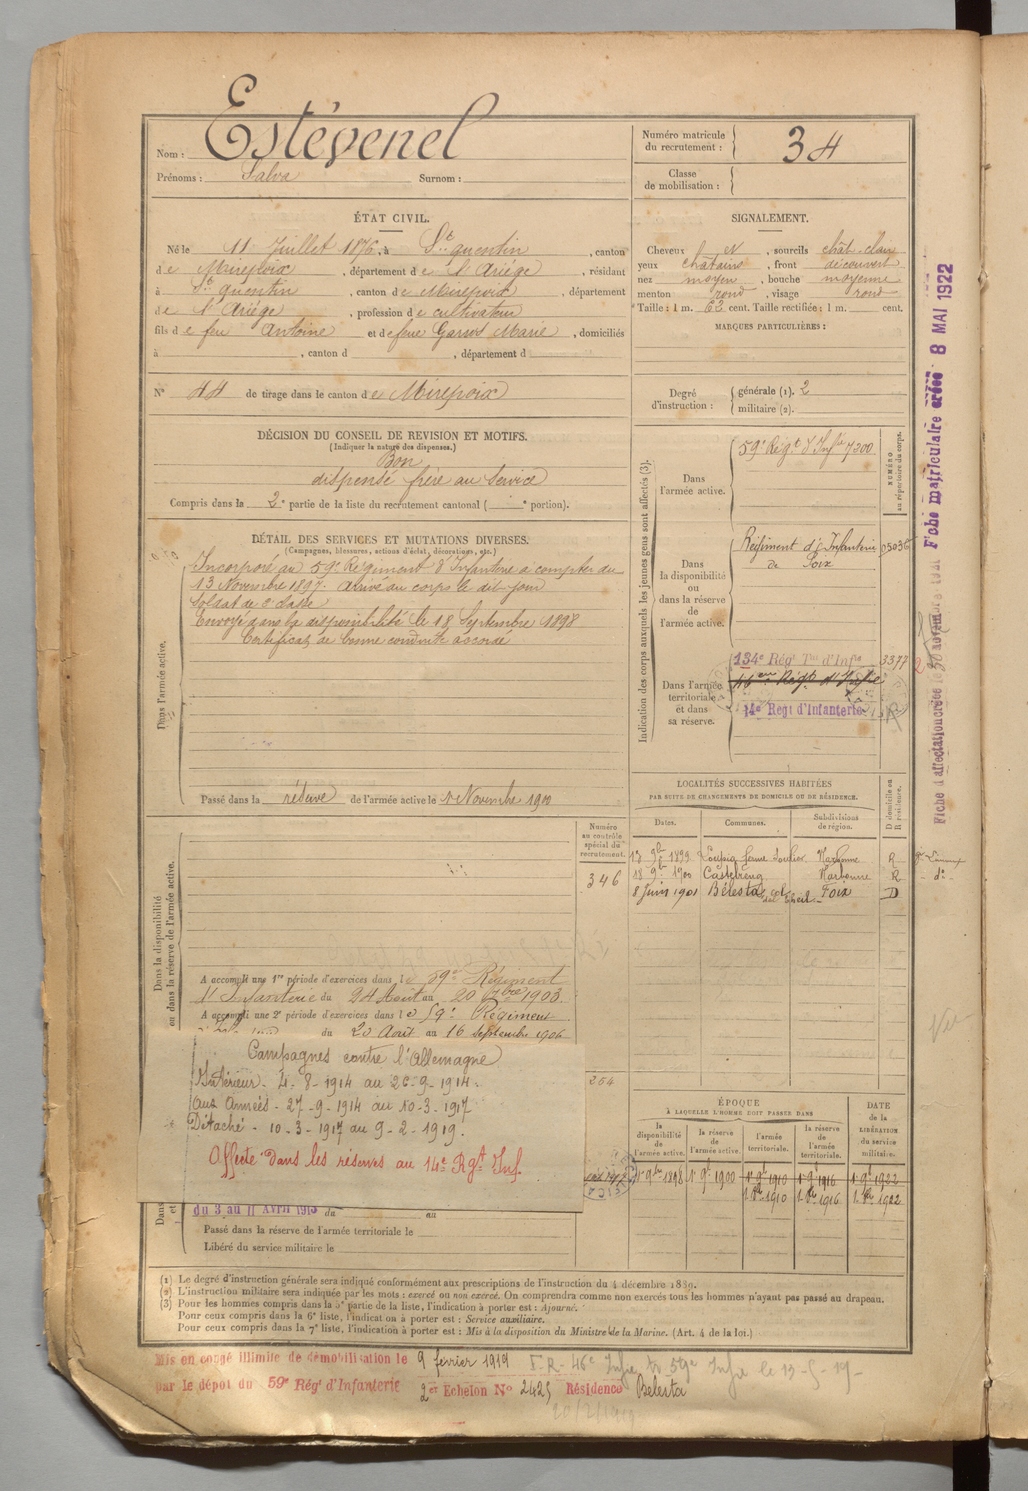 Nom : Estévenel
Prénoms : Salva Surnom :
Numéro matricule
du recrutement : 34
Classe
de mobilisation :
ÉTAT CIVIL.
Né le 11 Juillet 1876, à St quentin, canton
de Mirepoix, département de l'Ariège, résidant
à St quentin, canton de Mirepoix, département
de l'Ariège, profession de cultivateur
fils de feu Antoine et de feue Garros Marie, domiciliés
à , canton d , département d
N° 44 de tirage dans le canton de Mirepoix
SIGNALEMENT.
Cheveux et , sourcils chât. clair
yeux châtains, front découvert
nez moyen, bouche moyenne
menton rond, visage rond
Taille : 1 m. 62 cent. Taille rectifiée : 1 m. cent.
MARQUES PARTICULIÈRES :
Degré
d'instruction :
générale (1). 2
militaire (2).
DÉCISION DU CONSEIL DE REVISION ET MOTIFS.
(Indiquer la nature des dispenses.)
Bon
dispensé frère au Service
Compris dans la 2e partie de la liste du recrutement cantonal ( e portion).
DÉTAIL DES SERVICES ET MUTATIONS DIVERSES.
(Campagnes, blessures, actions d'éclat, décorations, etc.)
Dans l'armée active.
Incorporé au 59e Régiment d'Infanterie à compter du
13 Novembre 1897. Arrivé au corps le dit jour
Soldat de 2e classe
Envoyé dans la disponibilité le 18 Septembre 1898
Certificat de bonne conduite accordé
Passé dans la réserve de l'armée active le 1er Novembre 1900
Indication des corps auxquels les jeunes gens sont affectés (3).
NUMÉRO
au répertoire du corps.
Dans
l'armée active.
59e Régt d'Infie 7300
Dans
la disponibilité
ou
dans la réserve
de
l'armée active.
Régiment d'Infanterie 05036
de Foix
Dans l'armée
territoriale
et dans
sa réserve.
134e Régt Tal d'Infie 3377
14e Regt d'Infanterie
LOCALITÉS SUCCESSIVES HABITÉES
PAR SUITE DE CHANGEMENTS DE DOMICILE OU DE RÉSIDENCE.
Dates. Communes. Subdivisions
de région. D domicile ou
R résidence.
13 9bre 1899 Loupia ferme Narbonne R
18 9bre 1900 Castelreng Narbonne R - do -
8 Juin 1901 Bélesta Foix D
Dans la disponibilité
ou dans la réserve de l'armée active.
Numéro
au contrôle
spécial du
recrutement.
346
A accompli une 1re période d'exercices dans le 59e Régiment
d'Infanterie du 24 Août au 20 7bre 1903.
A accompli une 2e période d'exercices dans le 59e Régiment
du 20 Août au 16 Septembre 1906
Campagnes contre l'Allemagne
Intérieur - 4-8-1914 au 26-9-1914.
Aux Armées - 27-9-1914 au 10-3-1917
Détaché - 10-3-1917 au 9-2-1919.
Affecté dans les réserves au 14e Rgt Inf.
254
du 3 au 11 Avril 1913 du au
Passé dans la réserve de l'armée territoriale le
Libéré du service militaire le
ÉPOQUE
À LAQUELLE L'HOMME DOIT PASSER DANS
DATE
de la
LIBÉRATION
du service
militaire.
la
disponibilité
de
l'armée active.
la réserve
de
l'armée active.
l'armée
territoriale.
la réserve
de
l'armée
territoriale.
1er 9bre 1898 1er 9bre 1900 1er 9bre 1910 1er 9bre 1916 1er 9bre 1922
1910 1916 1922
(1) Le degré d'instruction générale sera indiqué conformément aux prescriptions de l'instruction du 4 décembre 1889.
(2) L'instruction militaire sera indiquée par les mots : exercé ou non exercé. On comprendra comme non exercés tous les hommes n'ayant pas passé au drapeau.
(3) Pour les hommes compris dans la 5e partie de la liste, l'indication à porter est : Ajourné.
Pour ceux compris dans la 6e liste, l'indication à porter est : Service auxiliaire.
Pour ceux compris dans la 7e liste, l'indication à porter est : Mis à la disposition du Ministre de la Marine. (Art. 4 de la loi.)
Mis en congé illimité de démobilisation le 9 février 1919
par le dépôt du 59e Régt d'Infanterie 2er Echelon N° 2425 Résidence Belesta
20/2/1919
Fiche matriculaire créée 8 MAI 1922
Fiche d'affectation créée le